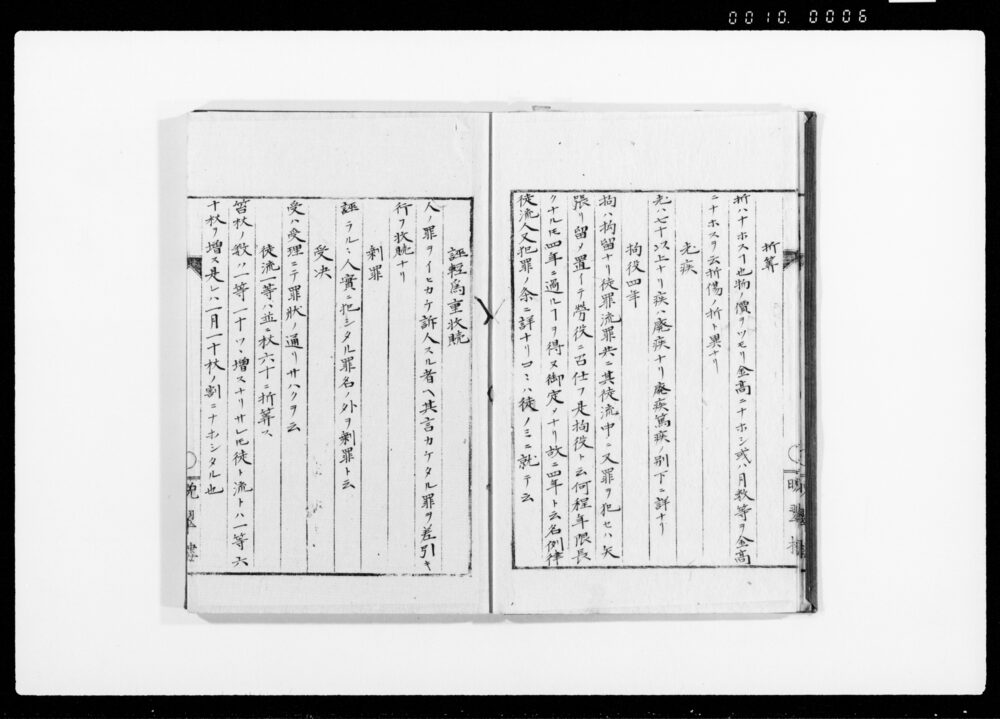 0010. 0006
折筭
折ハナホスヿ也物ノ價ヲツモリ金高ニナホシ或ハ月数等ヲ金高
ニナホスヲ云折傷ノ折ト異ナリ
老疾
老ハ七十以上ナリ疾ハ廃疾ナリ廃疾篤疾ノ別下ニ詳ナリ
拘役四年
拘ハ拘留ナリ徒罪流罪共ニ其徒流中ニ又罪ヲ犯セハ矢
張リ留メ置イテ労役ニ召仕フ是拘役ト云何程年限長
クナルトモ四年ニ過ルヿヲ得ヌ御定メナリ故ニ四年ト云名例律
徒流人又犯罪ノ条ニ詳ナリコヽハ徒ノミニ就テ云
晩翠樓
誣軽為重收贖
人ノ罪ヲイヒカケ訴人スル者ヘ其言カケタル罪ヲ差引キ
行フ收贖ナリ
剰罪
誣ラルヽ人實ニ犯シタル罪名ノ外ヲ剰罪ト云
受決
受ハ受理ニテ罪状ノ通リサハクヲ云
徒流一等ハ並ニ杖六十ニ折筭ス
笞杖ノ数ハ一等一十ツヽ増スナリサレトモ徒ト流トハ一等六
十杖ヲ増ス是レハ一月一十杖ノ割ニナホシタル也
晩翠樓